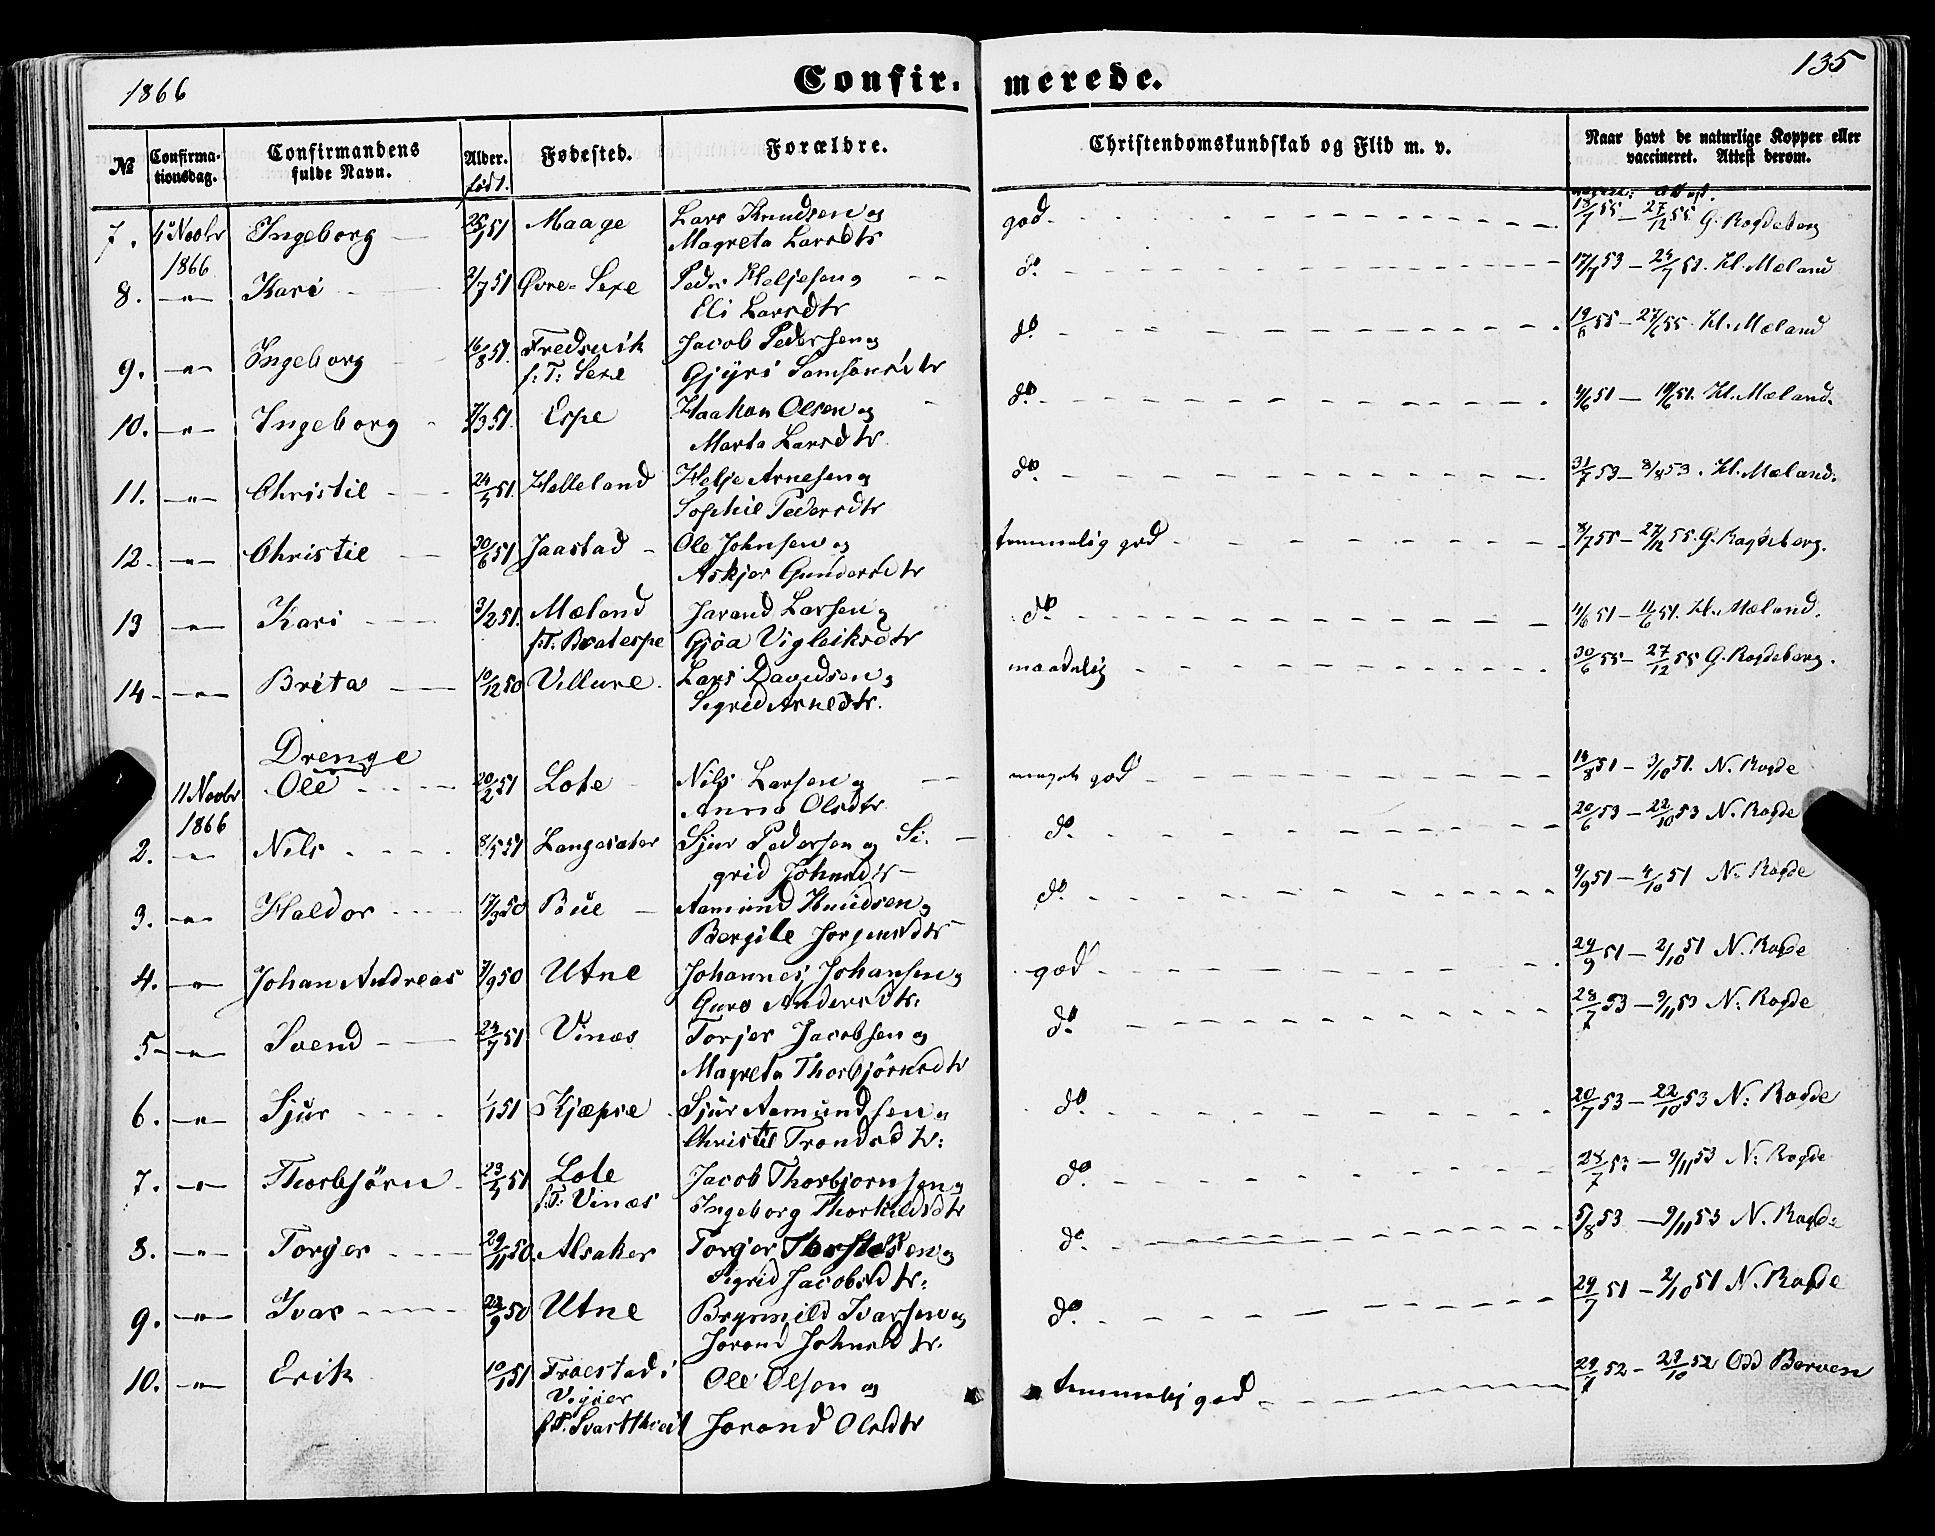 1866
Confir-
merede.
135
№
Confirma-
tionsdag.
Confirmandens
fulde Navn.
Alder.
født.
Fødested.
Forældre.
Christendomskundskab og Flid m. v.
Naar havt de naturlige Kopper eller
vaccineret. Attest derom.
7. 4 Novbr Ingeborg 51 Maage Lars Knudsen og god 18/7 55 – 27/12 55 G. Rogdeberg
1866 Magreta Larsdtr
8. –"– Kari 2/7 51 Øvre-Sexe Peder Heljesen og do. 17/7 53 – 51. H. Mæland
Eli Larsdtr
9. –"– Ingeborg 16/8 51. Fredsvik Jacob Pedersen og do 19/6 55 – 27/6 55. H. Mæland
f:T: Sexe Gjyri Samsonsdtr
10. –"– Ingeborg 7/3 51. Espe Haakon Olsen og do. 4/6 51 – 51. H. Mæland.
Marta Larsdtr.
11. –"– Christie 24/5 51. Helleland Helje Arnesen og do. 31/7 53 – 8/8 53. H. Mæland.
Sophie Pedersdtr
12. –"– Christie 30/6 51 Jaastad Ole Johnsen og temmelig god 8/7 55 – 27/12 55. G. Rogdeberg.
Askjer Gundersdtr
13 –"– Kari 3/2 51. Mæland Jarand Larsen og do. 4/6 51 – 11/6 51. H. Mæland.
f.T. Bratespe Gjøa Vigleiksdtr
14. –"– Brita 10/12 50 Villure. Lars Davidsen og maadelig 30/6 55 – 27/12 55 G. Rogdeberg.
Sigrid Arnedtr.
Drenge
11 Novbr Ole 20/2 51 Lote Nils Larsen og meget god 14/8 51 – 3/10 51. N. Rogde
1866 Anna Olsdtr
2. –"– Nils 8/5 51 Langesæter Sjur Pedersen og Si- do. 20/6 53 – 22/10 53 N. Rogde
grid Johnsdtr
3. –"– Haldor 17/3 50 Bue Aamund Knudsen og do. 9/9 51 – 4/10 51 N. Rogde
Bergile Jorgensdtr
4. –"– Johan Andreas 7/9 50 Utne Johannes Johansen og god 24/9 51 – 2/10 51 N. Rogde
Guro Andersdtr.
5. –"– Svend 24/7 51 Vines Torjer Jacobsen og do. 28/7 53 – 9/11 53 N. Rogde
Magreta Thorbjörnsdtr
6. –"– Sjur 1/1 51 Kjæpse Sjur Aamundsen og do. 20/7 53 – 22/10 53 N. Rogde
Christie Trondsdtr:
7. –"– Thorbjörn 23/4 51 Lote Jacob Thorbjornsen og do. 28/7 53 – 9/11 53 N. Rogde
f:T: Vinæs Ingeborg Thorkildsdtr
8. –"– Torger 29/11 50. Alsaker Torger Thorsteinsen og do. 5/8 53 – 9/11 53 N. Rogde
Sigrid Jacobsdtr:
9. –"– Ivar 50 Utne Brynnild Ivarsen og do. 29/7 51 – 2/10 51 N. Rogde
Jorand Johnsdtr.
10. –"– Erik 10/1 51 Fraestad i Ole Olson og temmelig god 29/7 52 – 27/10 52 Odd Berven
f.T. Svartthveit Jorand Olsdtr